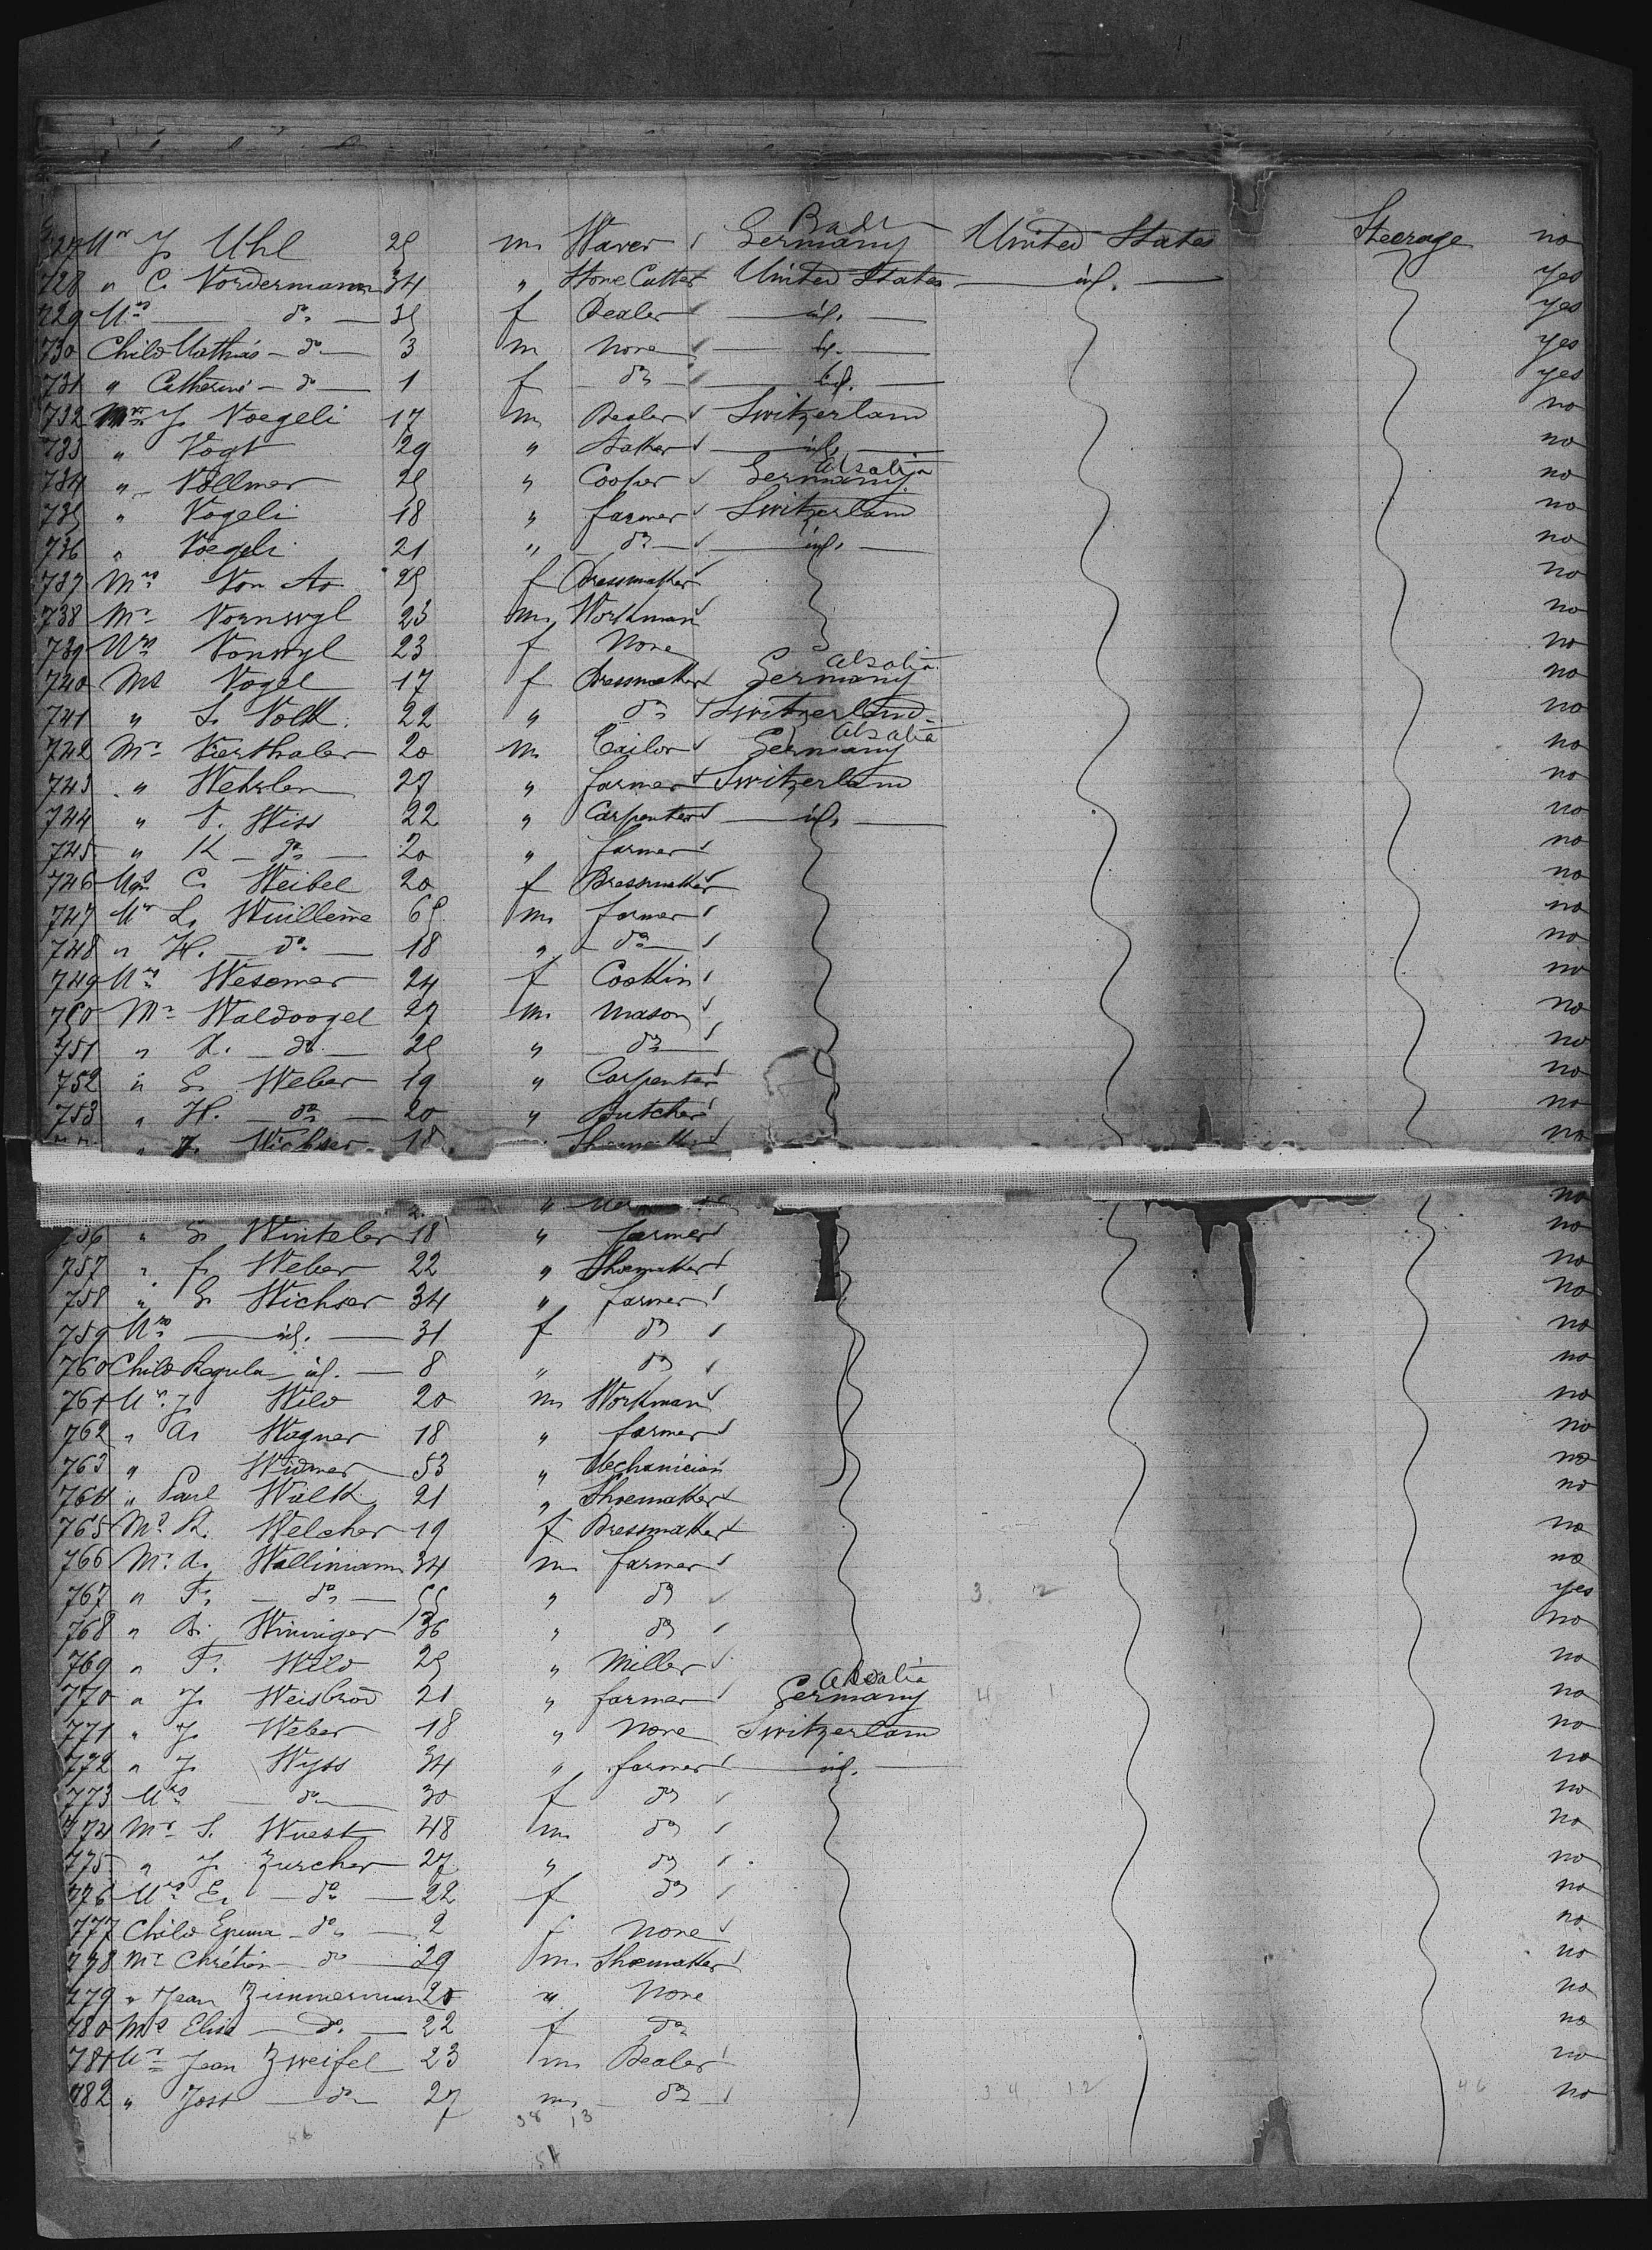 727 Mr J. Uhl 25 m Waver Germany Bade United States Steerage no
728 " C. Vordermann 34 " Stone Cutter United States id. yes
729 Mrs do 35 f Dealer id. yes
730 Child Mathias do 3 m None id. yes
731 " Catherine do 1 f do id. yes
732 Mr J. Voegeli 17 m Dealer Switzerland no
733 " Vogt 29 " id. no
734 " Vollmer 25 " Cooper Germany Alsatia no
735 " Vogeli 18 " farmer Switzerland no
736 " Voegeli 21 " do id. no
737 Mrs Von Ar 25 f Dressmaker no
738 Mr Vornwyl 23 m Workman no
739 Mrs Vonwyl 23 f None no
740 Ms Vogel 17 f Dressmaker Germany Alsatia no
741 " S. Volk 22 " do Switzerland no
742 Mr Vierthaler 20 m Tailor Germany Alsatia no
743 " Wehrlen 27 " farmer Switzerland no
744 " V. Wiss 22 " Carpenter id. no
745 " K do 20 " farmer no
746 C. Weibel 20 f Dressmaker no
747 Mr L. Wuilleme 65 m farmer no
748 " H. do 18 " do no
749 Mrs Wesemer 24 f no
750 Mr Waldvogel 27 m Mason no
751 " X. do 25 " do no
752 " G. Weber 19 " Carpenter no
753 " H. do 20 " Butcher no
" J. Wichser 18 Shoemaker no
" no
756 " G. Winteler 18 " farmer no
757 " f. Weber 22 " Shoemaker no
758 " G. Wichser 34 " farmer no
759 Mrs id. 31 f do no
760 Child Regula id. 8 " do no
761 Mr J. Wild 20 m Workman no
762 " A. Wagner 18 " farmer no
763 " Widmer 53 " Mechanician no
764 " Paul Walk 21 " Shoemaker no
765 Ms R. Welcher 19 f Dressmaker no
766 Mr A. Wallimann 34 m farmer no
767 " F. do 55 " do yes
768 " B. Wininger 36 " do no
769 " F. Wild 25 " Miller no
770 " J. Weisbrod 21 " farmer Germany Alsatia no
771 " J. Weber 18 " None Switzerland no
772 " J. Wyss 34 " farmer id. no
773 Mrs do 30 f do no
774 Mr S. Wuest 48 m do no
775 " J. Zurcher 27 " do no
776 Mrs E. do 22 f do no
777 Child Emma do 2 None no
778 Mr Chrétien do 29 m Shoemaker no
779 " Jean Zimmermann 25 " None no
780 Ms Elisa do 22 f do no
781 Mr Jean Zweifel 23 m Dealer no
782 " Jost do 27 m do no